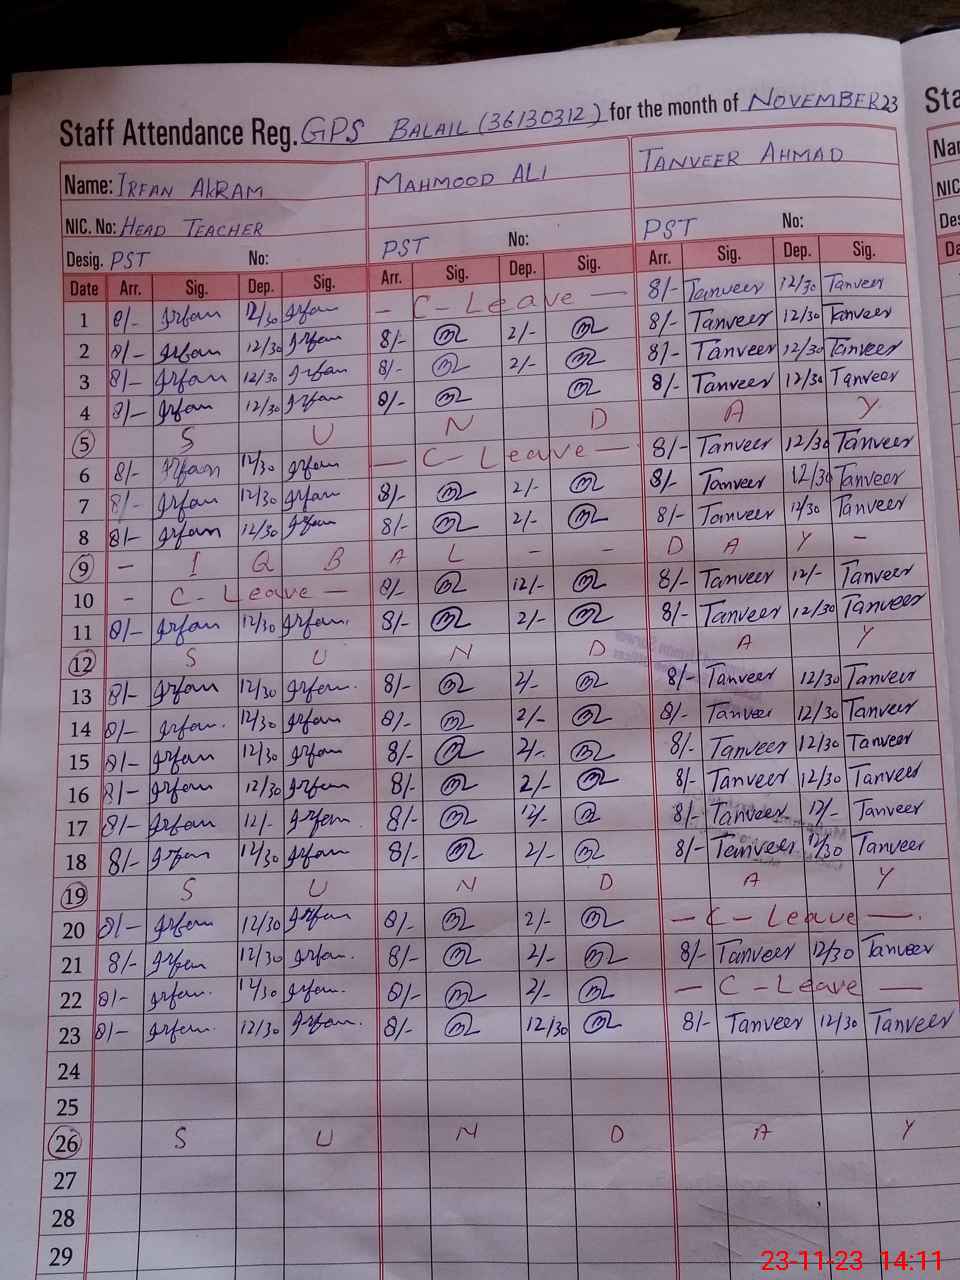 Staff Attendance Reg. GPS BALAIL (36130312) for the month of NOVEMBER 23 Sta
Name: IRFAN AKRAM MAHMOOD ALI TANVEER AHMAD Nar
NIC. No: HEAD TEACHER NIC
Desig. PST No: PST No: PST No: Des
Date Arr. Sig. Dep. Sig. Arr. Sig. Dep. Sig. Arr. Sig. Dep. Sig. Da
1 8/- Irfan 12/30 Irfan - C - Leave - 8/- Tanveer 12/30 Tanveer
2 8/- Irfan 12/30 Irfan 8/- 2/- 8/- Tanveer 12/30 Tanveer
3 8/- Irfan 12/30 Irfan 8/- 2/- 8/- Tanveer 12/30 Tanveer
4 8/- Irfan 12/30 Irfan 8/- 8/- Tanveer 12/30 Tanveer
5 S U N D A Y
6 8/- Irfan 12/30 Irfan - C - Leave - 8/- Tanveer 12/30 Tanveer
7 8/- Irfan 12/30 Irfan 8/- 2/- 8/- Tanveer 12/30 Tanveer
8 8/- Irfan 12/30 Irfan 8/- 2/- 8/- Tanveer 12/30 Tanveer
9 - I Q B A L - - D A Y -
10 - C - Leave - 8/- 12/- 8/- Tanveer 12/- Tanveer
11 8/- Irfan 12/30 Irfan. 8/- 2/- 8/- Tanveer 12/30 Tanveer
12 S U N D A Y
13 8/- Irfan 12/30 Irfan. 8/- 2/- 8/- Tanveer 12/30 Tanveer
14 8/- Irfan. 12/30 Irfan 8/- 2/- 8/- Tanveer 12/30 Tanveer
15 8/- Irfan 12/30 Irfan 8/- 2/- 8/- Tanveer 12/30 Tanveer
16 8/- Irfan 12/30 Irfan 8/- 2/- 8/- Tanveer 12/30 Tanveer
17 8/- Irfan 12/- Irfan. 8/- 12/- 8/- Tanveer 12/- Tanveer
18 8/- Irfan 12/30 Irfan 8/- 2/- 8/- Tanveer 12/30 Tanveer
19 S U N D A Y
20 8/- Irfan 12/30 Irfan 8/- 2/- - C - Leave -.
21 8/- Irfan 12/30 Irfan. 8/- 2/- 8/- Tanveer 12/30 Tanveer
22 8/- Irfan. 12/30 Irfan. 8/- 2/- - C - Leave -
23 8/- Irfan. 12/30 Irfan. 8/- 12/30 8/- Tanveer 12/30 Tanveer
24
25
26 S U N D A Y
27
28
29
23-11-23 14:11